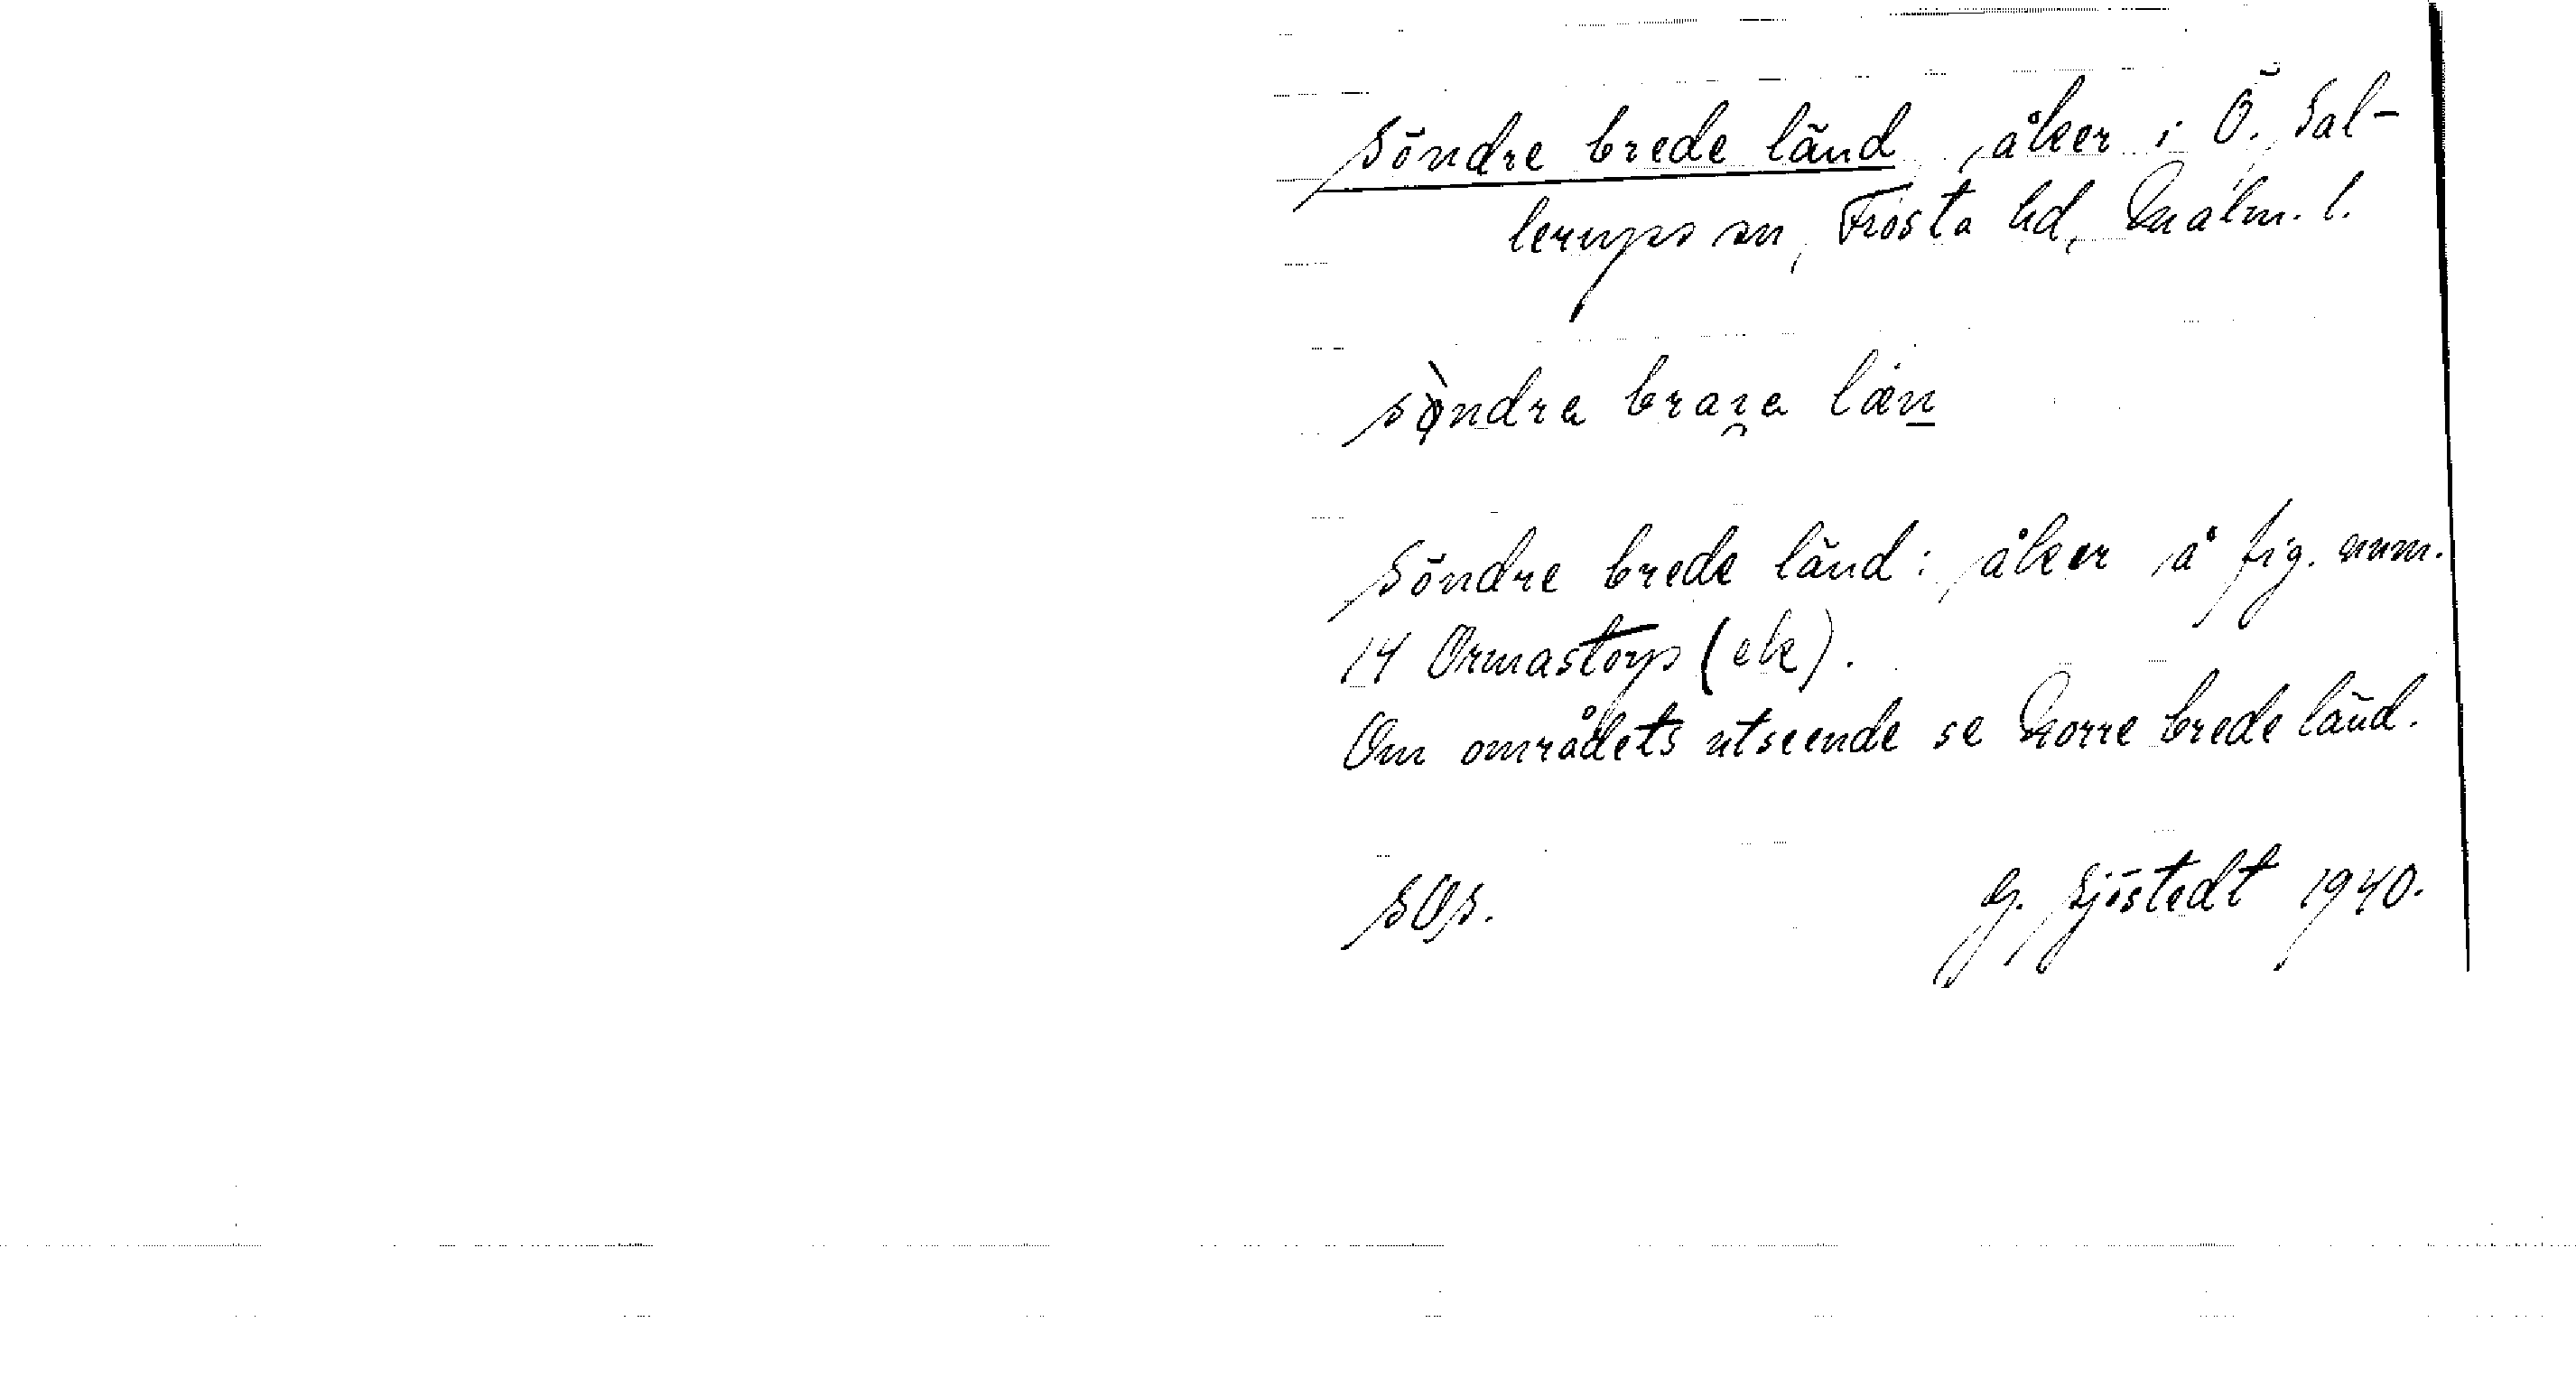 Söndre brede länd, åker i Ö. Sal-
lerups sn, Frosta hd, Malm. l.
sø̀ndra brara læn
Söndre brede länd: åker å fig. num.
14 Ormastorp (ek).
Om områdets utseende se Norre brede länd.
SOS. G. Sjöstedt 1940.